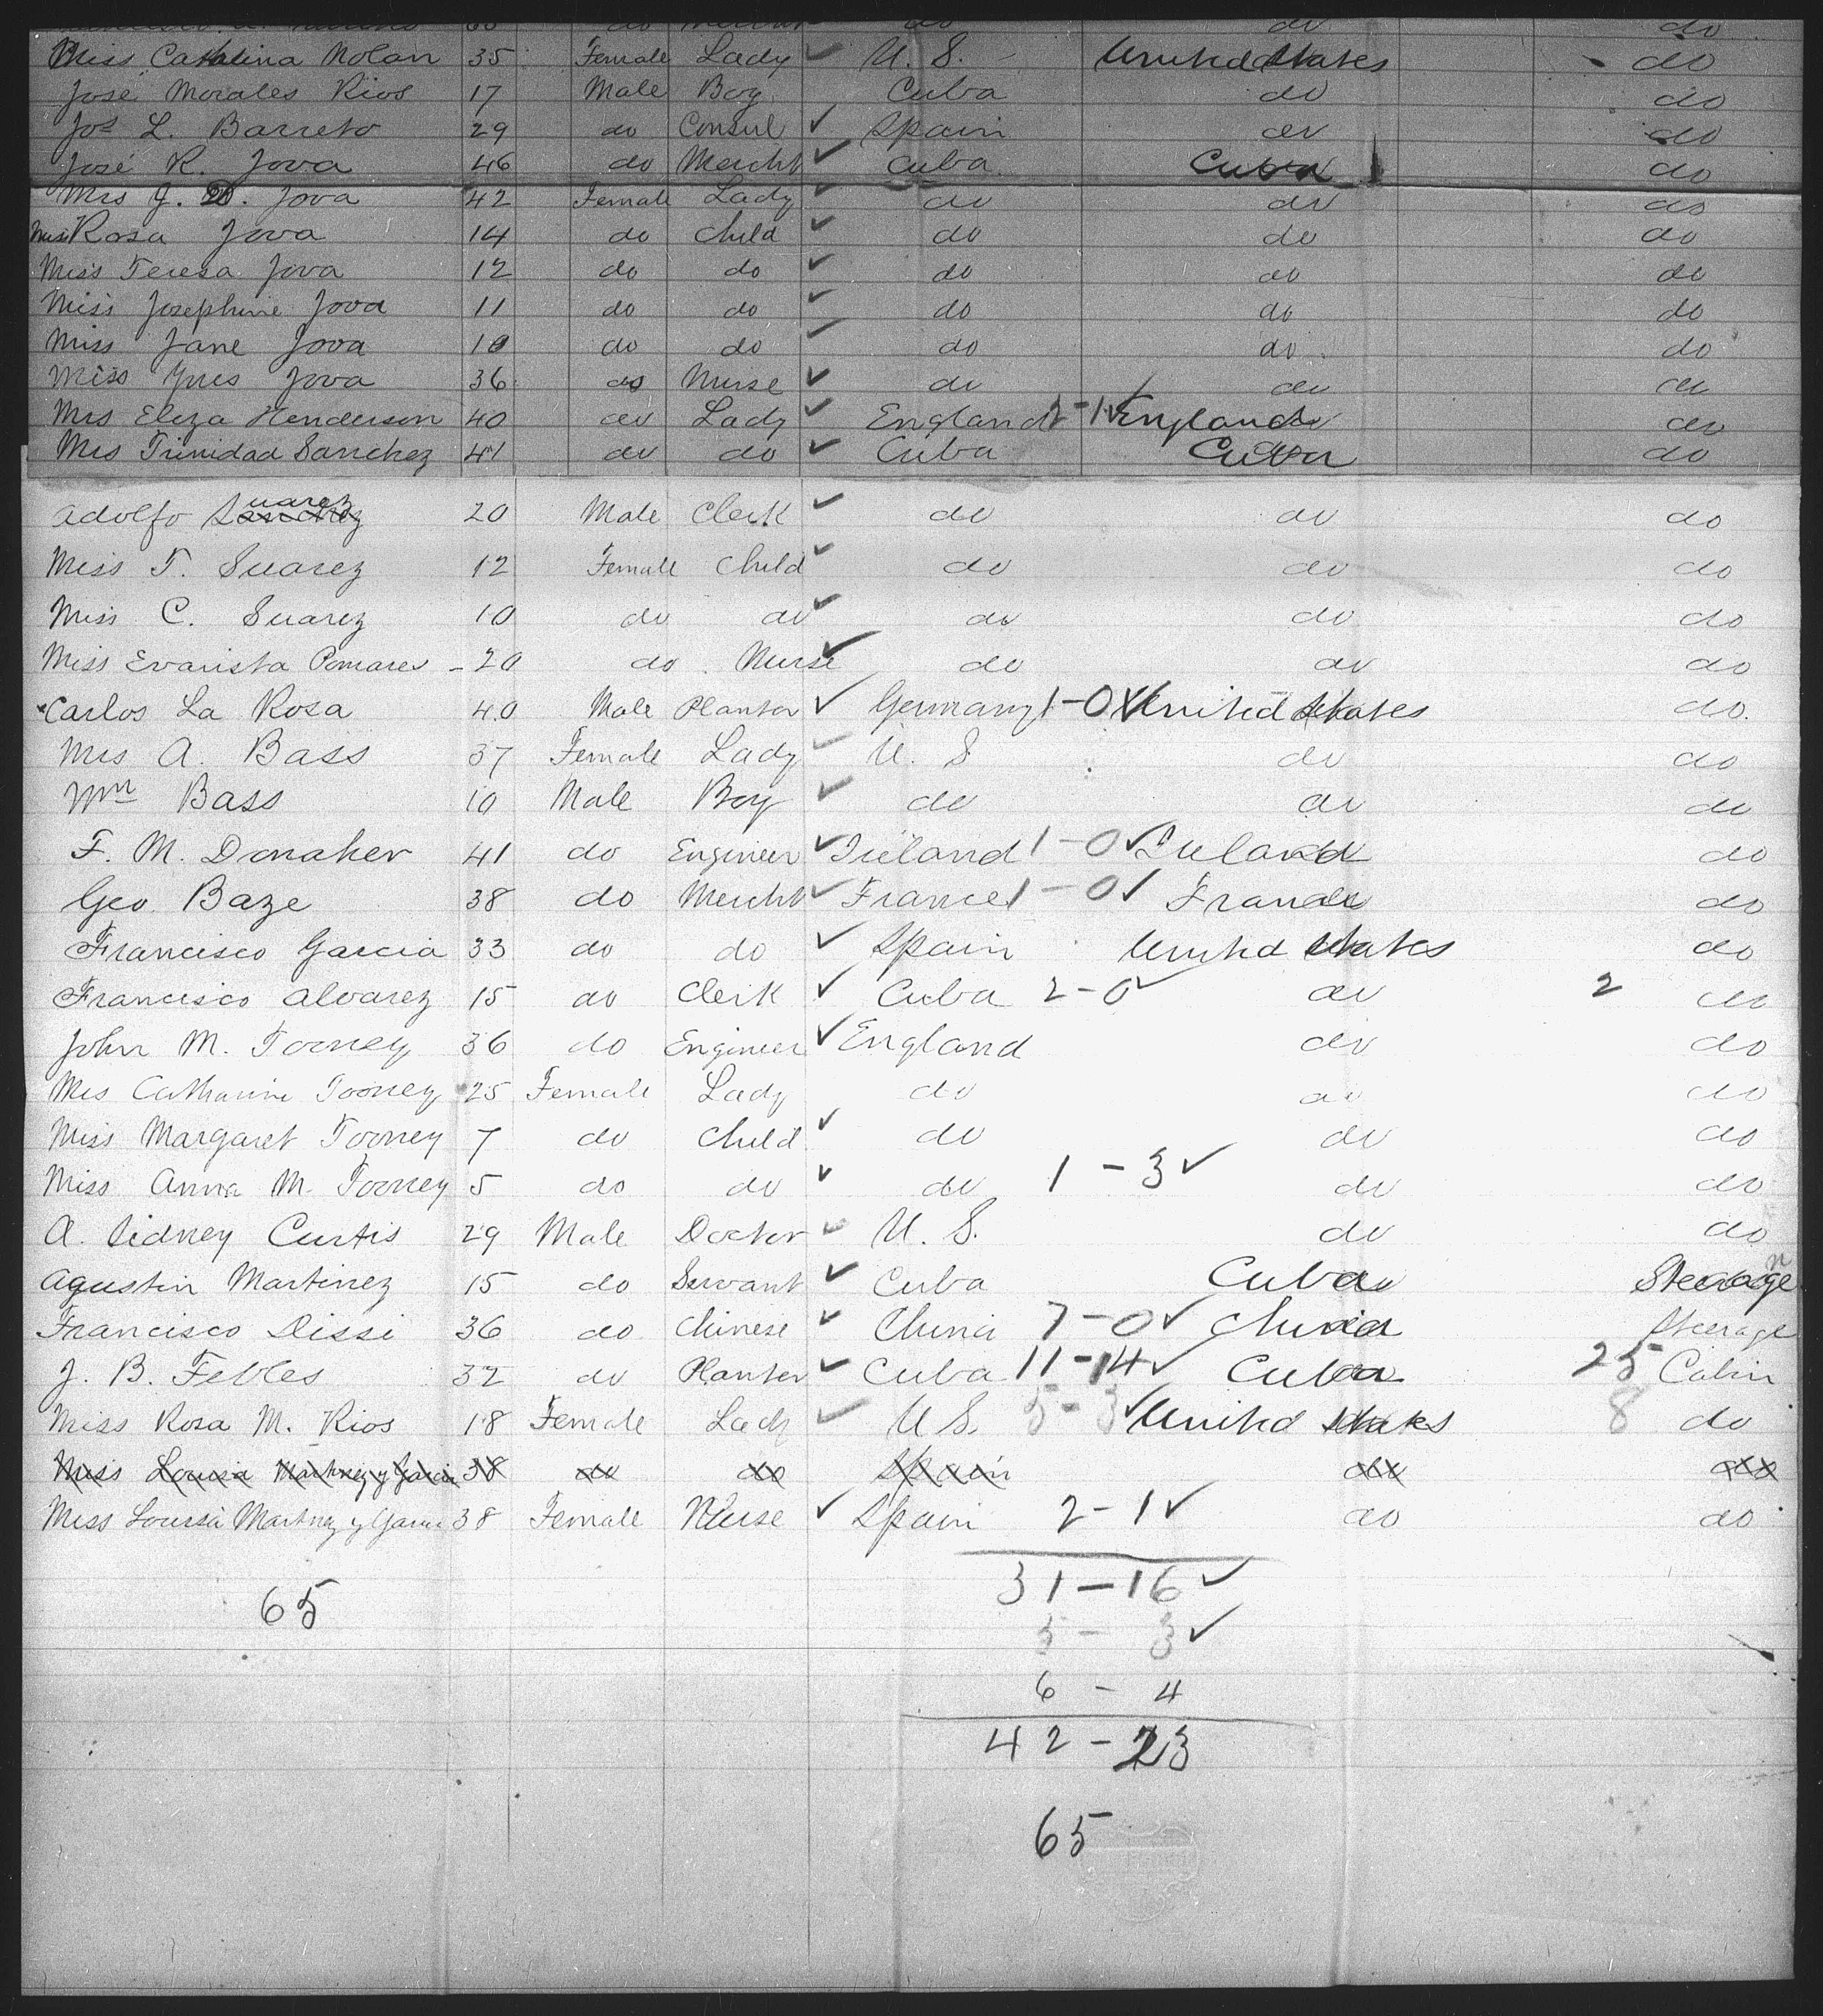 Miss Catalina Nolan 35 Female Lady ✓ U. S. United States do
José Morales Rios 17 Male Boy Cuba do do
Jos L. Barreto 29 do Consul ✓ Spain do do
José R. Jova 46 do Mercht ✓ Cuba Cuba do
Mrs J. D. Jova 42 Female Lady ✓ do do do
Miss Rosa Jova 14 do Child ✓ do do do
Miss Teresa Jova 12 do do ✓ do do do
Miss Josephine Jova 11 do do ✓ do do do
Miss Jane Jova 10 do do ✓ do do do
Miss Ynes Jova 36 do Nurse ✓ do do do
Mrs Eliza Henderson 40 do Lady ✓ England - 1 ✓ England do
Mrs Trinidad Sanchez 41 do do ✓ Cuba Cuba do
Adolfo Suarez 20 Male Clerk ✓ do do do
Miss T. Suarez 12 Female Child ✓ do do do
Miss C. Suarez 10 do do ✓ do do do
Miss Evarista Pomares - 20 do Nurse ✓ do do do
Carlos La Rosa 40 Male Planter ✓ Germany 1-0 ✓ United States do
Mrs A. Bass 37 Female Lady ✓ U. S do do
Wm Bass 10 Male Boy ✓ do do do
F. M. Donaher 41 do Engineer ✓ Ireland 1-0 ✓ Ireland do
Geo. Baze 38 do Mercht ✓ France 1-0 ✓ France do
Francisco Garcia 33 do do ✓ Spain United States do
Francisco Alvarez 15 do Clerk ✓ Cuba 2-0 ✓ do 2 do
John M. Tooney 36 do Engineer ✓ England do do
Mrs Catharine Tooney 25 Female Lady do do do
Miss Margaret Tooney 7 do Child ✓ do do do
Miss Anna M. Tooney 5 do do ✓ do 1-3 ✓ do do
A. Sidney Curtis 29 Male Doctor ✓ U. S. do do
Agustin Martinez 15 do Servant ✓ Cuba Cuba Steerage
Francisco Dissi 36 do Chinese ✓ China 7-0 ✓ China Steerage
J. B. Febles 32 do Planter ✓ Cuba 11-14 ✓ Cuba 25 Cabin
Miss Rosa M. Rios 18 Female Lady ✓ U S. 5-3 ✓ United States 8 do
Miss Louisa Martinez y Garcia 38 do do Spain do do
Miss Louisa Martinez y Garcia 38 Female Nurse ✓ Spain 2-1 ✓ do do
31-16 ✓
65
5 - 3 ✓
6 - 4
42-23
65